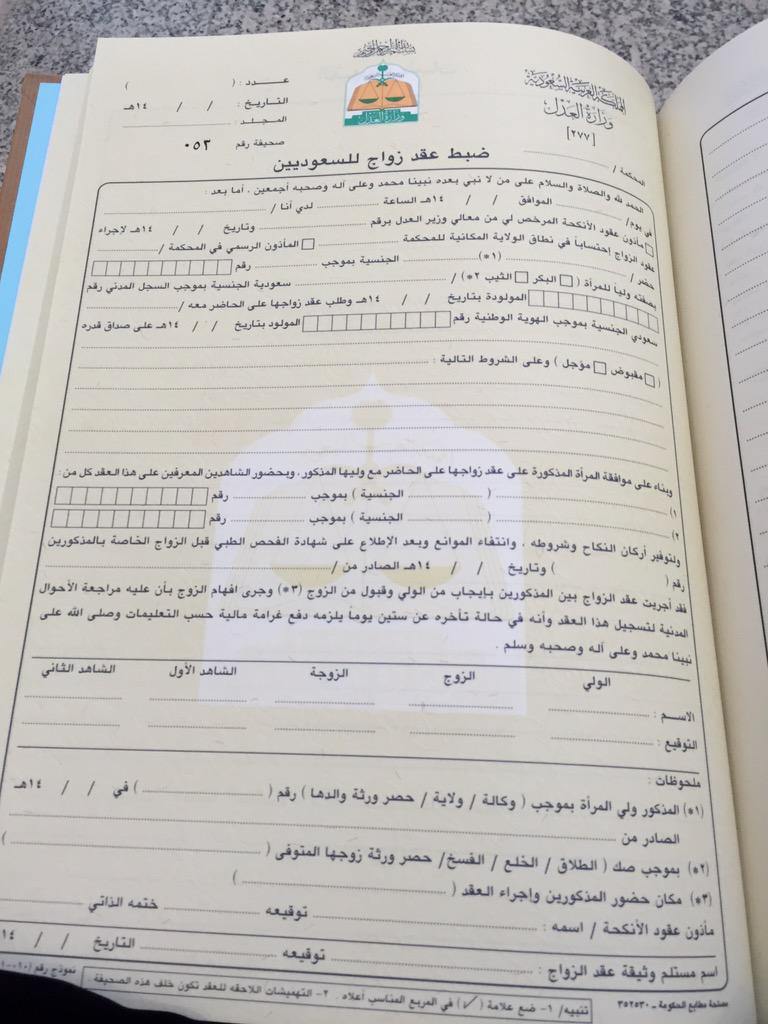 بسم الله الرحمن الرحيم
المملكة العربية السعودية
وزارة العدل
[٢٧٧]
المحكمة /
وزارة العدل
عدد : ( )
التاريخ : / / ١٤هـ
المجلد :
صحيفة رقم ٠٥٣
ضبط عقد زواج للسعوديين
الحمد لله والصلاة والسلام على من لا نبي بعده نبينا محمد وعلى آله وصحبه أجمعين . أما بعد :
في يوم/ الموافق / / ١٤هـ الساعة لدي أنا /
□ مأذون عقود الأنكحة المرخص لي من معالي وزير العدل برقم وتاريخ / / ١٤هـ لإجراء
عقود الزواج إحتساباً في نطاق الولاية المكانية للمحكمة □ المأذون الرسمي في المحكمة /
حضر / (*١) الجنسية بموجب رقم
بصفته ولياً للمرأة ( □ البكر □ الثيب *٢) / سعودية الجنسية بموجب السجل المدني رقم
المولودة بتاريخ / / ١٤هـ وطلب عقد زواجها على الحاضر معه /
سعودي الجنسية بموجب الهوية الوطنية رقم المولود بتاريخ / / ١٤هـ على صداق قدره
( □ مقبوض □ مؤجل ) وعلى الشروط التالية :
وبناء على موافقة المرأة المذكورة على عقد زواجها على الحاضر مع وليها المذكور . وبحضور الشاهدين المعرفين على هذا العقد كل من :
١) ( الجنسية ) بموجب رقم
٢) ( الجنسية ) بموجب رقم
ولتوفير أركان النكاح وشروطه . وانتفاء الموانع وبعد الإطلاع على شهادة الفحص الطبي قبل الزواج الخاصة بالمذكورين
رقم ( ) وتاريخ / / ١٤هـ الصادر من /
فقد أجريت عقد الزواج بين المذكورين بإيجاب من الولي وقبول من الزوج (*٣) وجرى افهام الزوج بأن عليه مراجعة الأحوال
المدنية لتسجيل هذا العقد وأنه في حالة تأخره عن ستين يوماً يلزمه دفع غرامة مالية حسب التعليمات وصلى الله على
نبينا محمد وعلى آله وصحبه وسلم .
الولي الزوج الزوجة الشاهد الأول الشاهد الثاني
الاسم :
التوقيع :
ملحوظات :
(*١) المذكور ولي المرأة بموجب ( وكالة / ولاية / حصر ورثة والدها ) رقم ( ) في / / ١٤هـ
الصادر من
(*٢) بموجب صك ( الطلاق / الخلع / الفسخ/ حصر ورثة زوجها المتوفى ( )
(*٣) مكان حضور المذكورين وإجراء العقد ( )
مأذون عقود الأنكحة / اسمه : توقيعه ختمه الذاتي
اسم مستلم وثيقة عقد الزواج : توقيعه التاريخ / / ١٤
مصلحة مطابع الحكومة - ٣٥٢٥٣٠
تنبيه/ ١- ضع علامة (✓) في المربع المناسب أعلاه . ٢- التهميشات اللاحقة للعقد تكون خلف هذه الصحيفة .
نموذج رقم